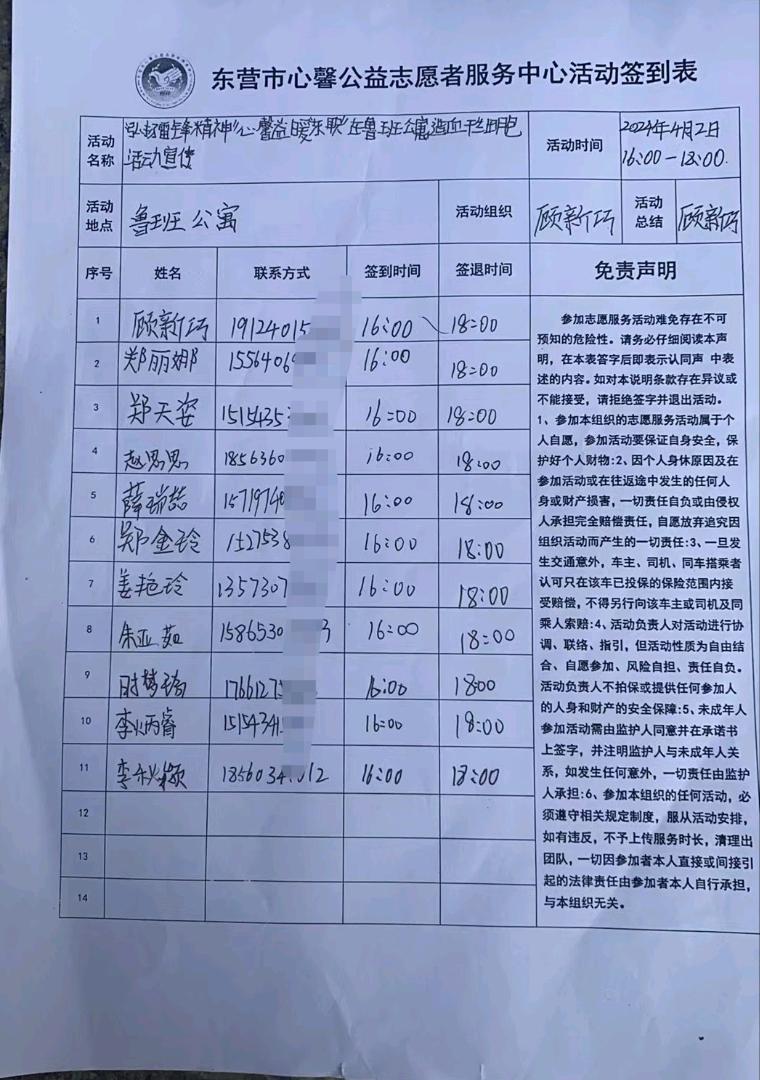 东营市心馨公益志愿者服务中心活动签到表
活动名称 弘扬雷锋精神"心馨益暖东职"在鲁班公寓造血干细胞活动宣传 活动时间 2024年4月2日 16:00-18:00.
活动地点 鲁班公寓 活动组织 顾新巧 活动总结 顾新巧
序号 姓名 联系方式 签到时间 签退时间 免责声明
1 顾新巧 19124015 16:00 18:00
2 郑丽娜 1556406 16:00 18:00
3 郑天姿 1515435 16:00 18:00
4 赵思思 1856360 16:00 18:00
5 薛瑞喆 1571974 16:00 18:00
6 郑金玲 1527538 16:00 18:00
7 姜艳玲 1357307 16:00 18:00
8 朱亚茹 1586530 3 16:00 18:00
9 时梦瑶 1766127 16:00 18:00
10 李炳睿 15154341 16:00 18:00
11 李秋颖 1856034 012 16:00 18:00
12
13
14
参加志愿服务活动难免存在不可
预知的危险性。请务必仔细阅读本声
明,在本表签字后即表示认同声 中表
述的内容。如对本说明条款存在异议或
不能接受,请拒绝签字并退出活动。
1、参加本组织的志愿服务活动属于个
人自愿,参加活动要保证自身安全,保
护好个人财物:2、因个人身休原因及在
参加活动或在往返途中发生的任何人
身或财产损害,一切责任自负或由侵权
人承担完全赔偿责任,自愿放弃追究因
组织活动而产生的一切责任:3、一旦发
生交通意外,车主、司机、同车搭乘者
认可只在该车已投保的保险范围内接
受赔偿,不得另行向该车主或司机及同
乘人索赔:4、活动负责人对活动进行协
调、联络、指引,但活动性质为自由结
合、自愿参加、风险自担、责任自负。
活动负责人不拍保或提供任何参加人
的人身和财产的安全保障:5、未成年人
参加活动需由监护人同意并在承诺书
上签字,并注明监护人与未成年人关
系,如发生任何意外,一切责任由监护
人承担:6、参加本组织的任何活动,必
须遵守相关规定制度,服从活动安排,
如有违反,不予上传服务时长,清理出
团队,一切因参加者本人直接或间接引
起的法律责任由参加者本人自行承担,
与本组织无关。